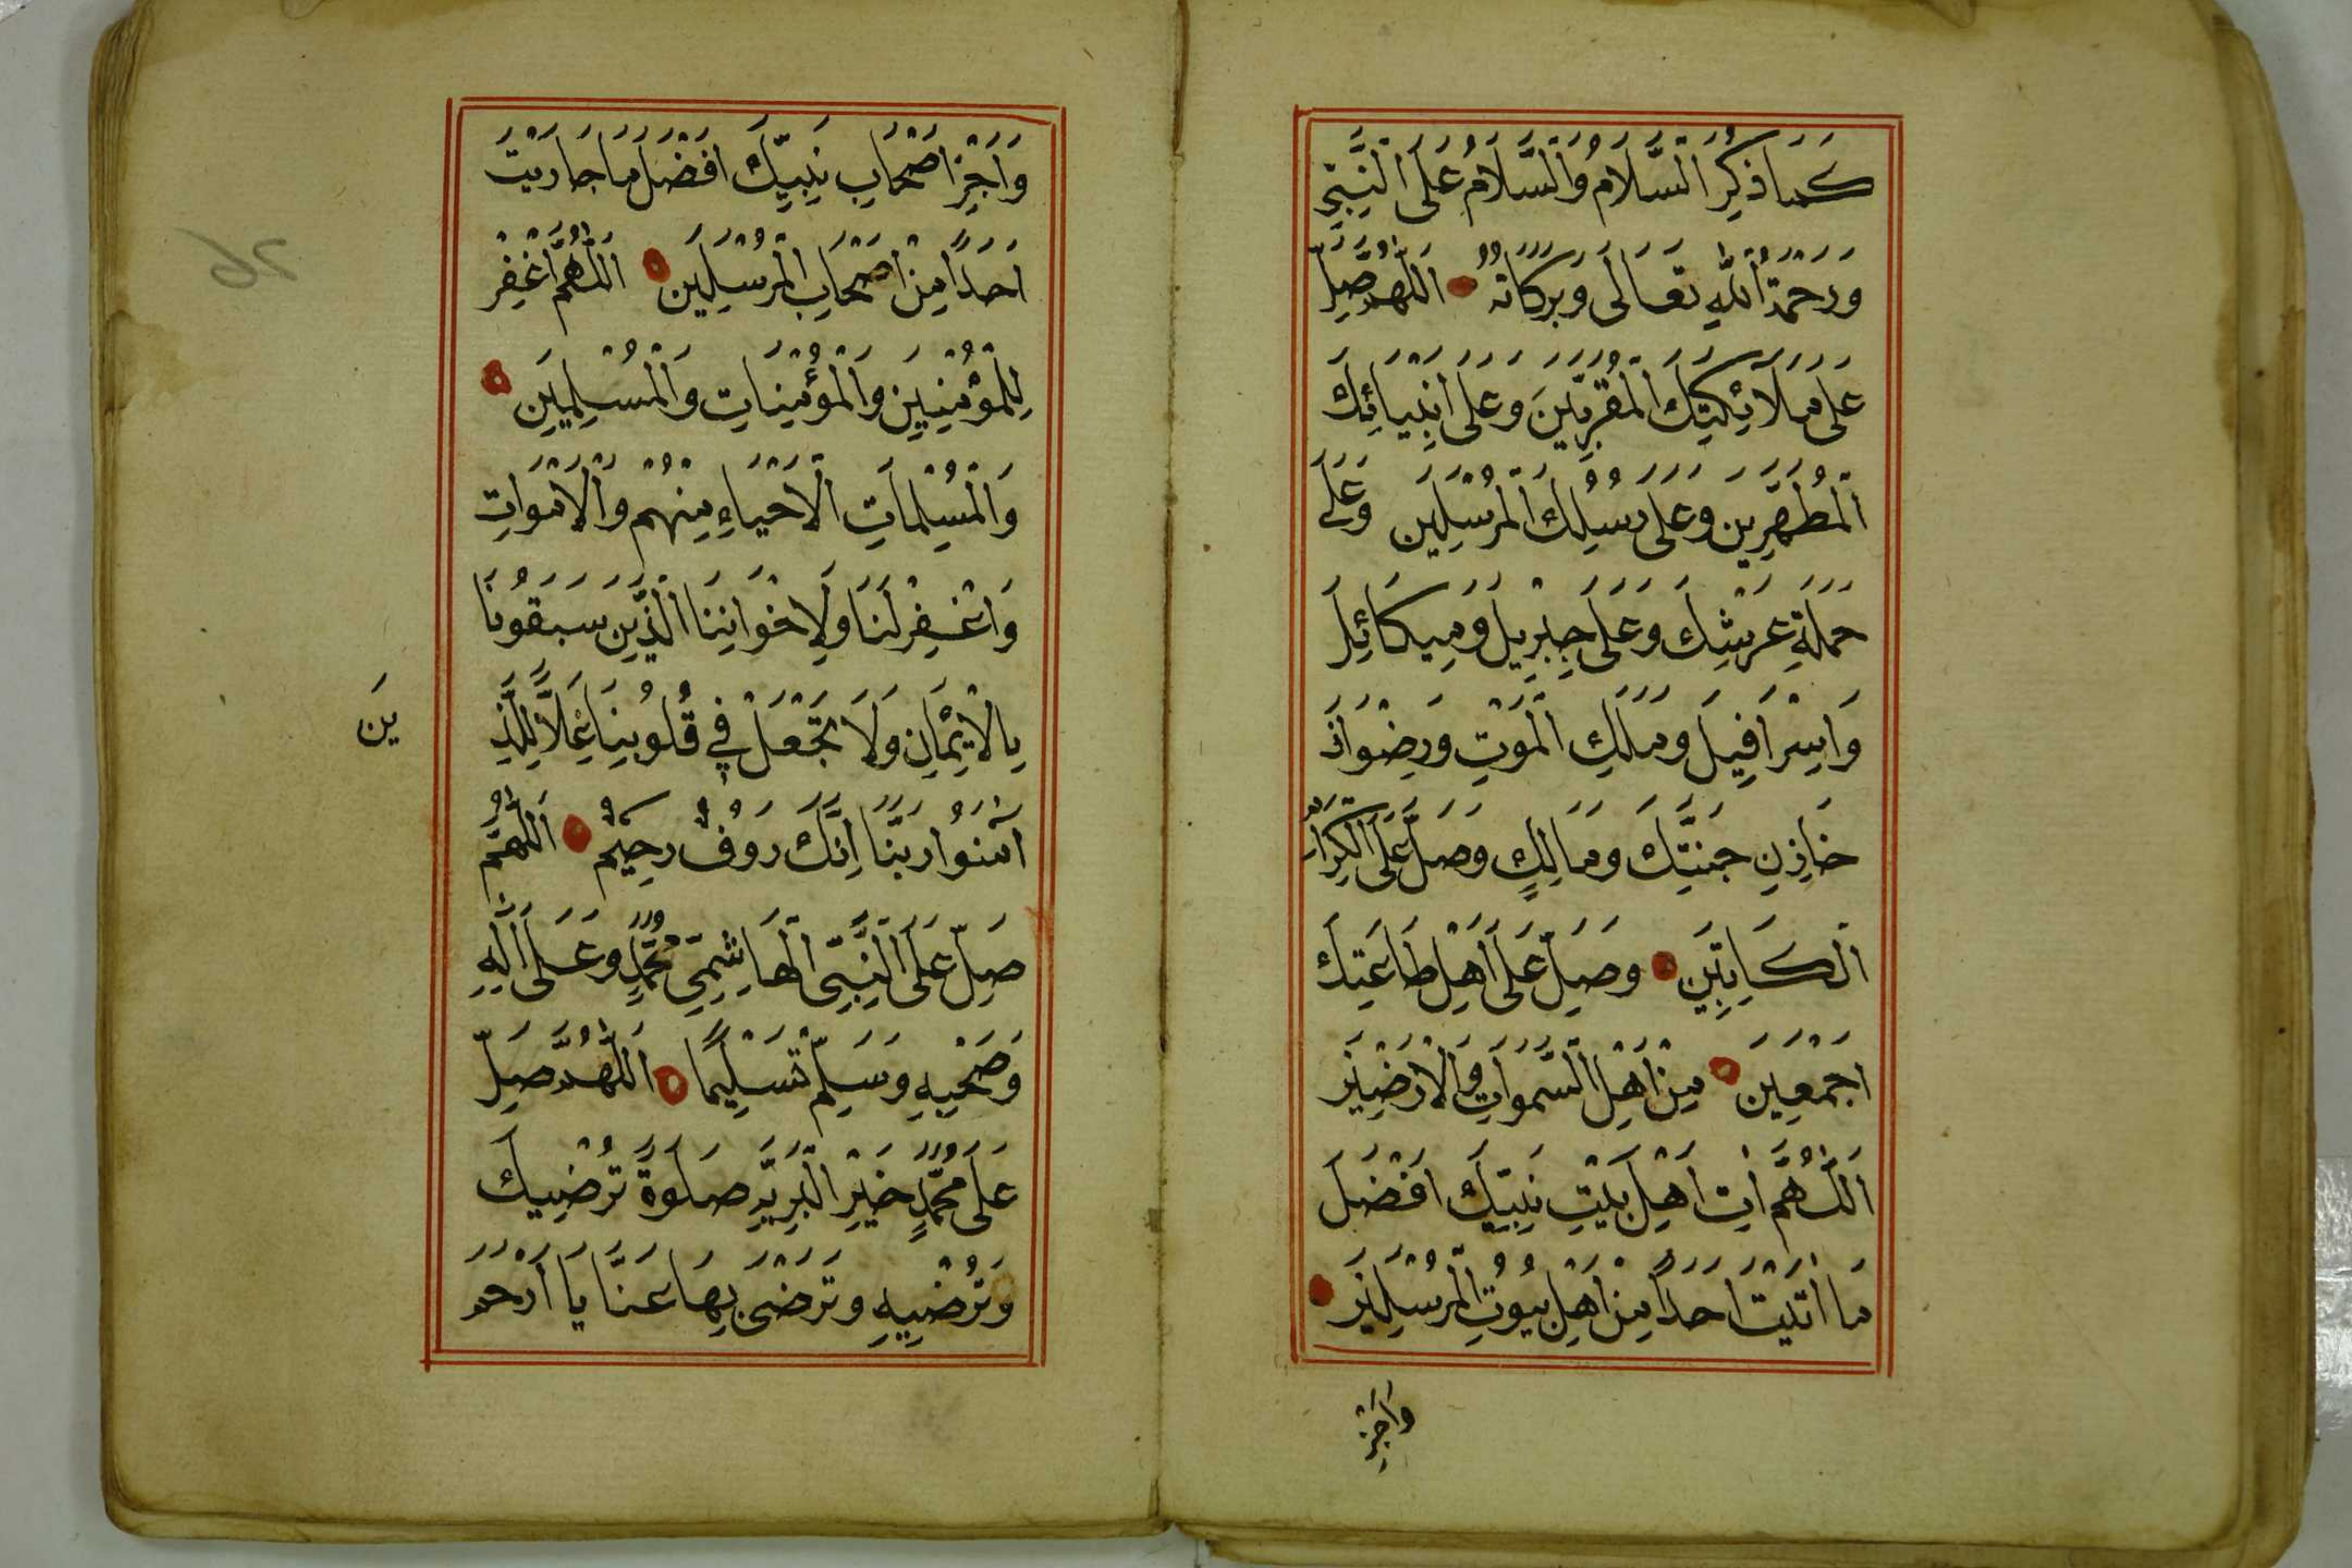 كَمَا ذُكِرَ السَّلَامُ وَالسَّلَامُ عَلَى النَّبِيِّ
وَرَحْمَةُ اللّٰهِ تَعَالَى وَبَرَكَاتُهُ اَللّٰهُمَّ صَلِّ
عَلَى مَلَائِكَتِكَ الْمُقَرَّبِينَ وَعَلَى اَنْبِيَائِكَ
الْمُطَهَّرِينَ وَعَلَى رُسُلِكَ الْمُرْسَلِينَ وَعَلَى
حَمَلَةِ عَرْشِكَ وَعَلَى جِبْرِيلَ وَمِيكَائِلَ
وَاِسْرَافِيلَ وَمَلَكِ الْمَوْتِ وَرِضْوَانَ
خَازِنِ جَنَّتِكَ وَمَالِكٍ وَصَلِّ عَلَى الْكِرَامِ
الْكَاتِبِينَ وَصَلِّ عَلَى اَهْلِ طَاعَتِكَ
اَجْمَعِينَ مِنْ اَهْلِ السَّمَوَاتِ وَالْاَرَضِينَ
اَللّٰهُمَّ اٰتِ اَهْلَ بَيْتِ نَبِيِّكَ اَفْضَلَ
مَا اٰتَيْتَ اَحَدًا مِنْ اَهْلِ بُيُوتِ الْمُرْسَلِينَ
وَاَجْزِ
وَاَجْزِ اَصْحَابَ نَبِيِّكَ اَفْضَلَ مَا جَازَيْتَ
اَحَدًا مِنْ اَصْحَابِ الْمُرْسَلِينَ اَللّٰهُمَّ اغْفِرْ
لِلْمُؤْمِنِينَ وَالْمُؤْمِنَاتِ وَالْمُسْلِمِينَ
وَالْمُسْلِمَاتِ الْاَحْيَاءِ مِنْهُمْ وَالْاَمْوَاتِ
وَاغْفِرْ لَنَا وَلِاِخْوَانِنَا الَّذِينَ سَبَقُونَا
بِالْاِيمَانِ وَلَا تَجْعَلْ فِي قُلُوبِنَا غِلًّا لِلَّذِ
ينَ
اٰمَنُوا رَبَّنَا اِنَّكَ رَوُفٌ رَحِيمٌ اَللّٰهُمَّ
صَلِّ عَلَى النَّبِيِّ الْهَاشِمِيِّ مُحَمَّدٍ وَعَلَى اٰلِهِ
وَصَحْبِهِ وَسَلِّمْ تَسْلِيمًا اَللّٰهُمَّ صَلِّ
عَلَى مُحَمَّدٍ خَيْرِ الْبَرِيَّةِ صَلَوةً تُرْضِيكَ
وَتُرْضِيهِ وَتَرْضَى بِهَا عَنَّا يَا اَرْحَمَ